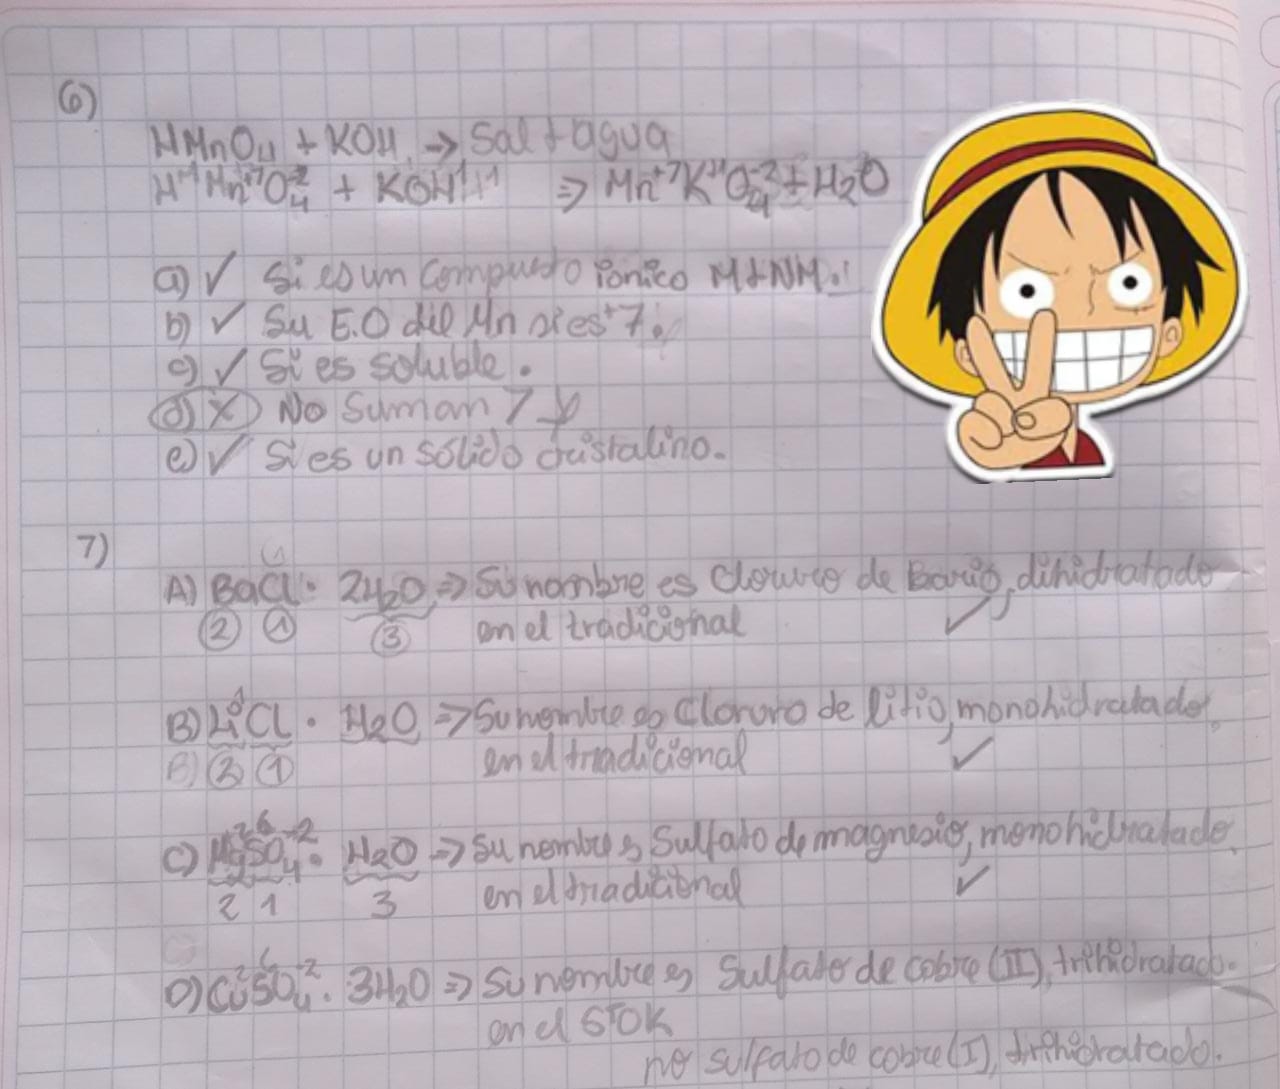 6)
HMnO4 + KOH → Sal + agua
H+1 Mn+7 O4-2 + KOH+1 ⇒ Mn+7 K+1 O4-2 + H2O
a) ✓ Si es un compuesto iónico M+NM.
b) ✓ Su E.O del Mn si es +7.
c) ✓ Si es soluble.
d) X No suman 7
e) ✓ Si es un sólido cristalino.
7)
A) BaCl · 2H2O ⇒ Su nombre es Cloruro de Bario, dihidratado
2 1 3 en el tradicional ✓
B) LiCl · H2O ⇒ Su nombre es Cloruro de litio, monohidratado,
B) 2 1 en el tradicional ✓
C) MgSO4 · H2O ⇒ Su nombre es Sulfato de magnesio, monohidratado,
2 1 3 en el tradicional ✓
D) CuSO4 · 3H2O ⇒ Su nombre es Sulfato de cobre (II), trihidratado.
en el STOK
no sulfato de cobre (I), trihidratado.